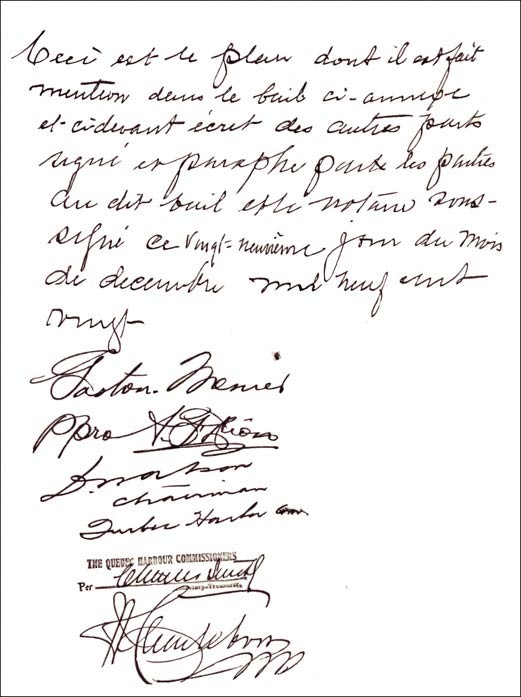 Ceci est le plan dont il est fait
mention dans le bail ci-annexé
et ci-devant écrit des autres parts
signé et paraphé par les parties
au dit bail et le notaire sous-
signé ce vingt-neuvième jour du mois
de decembre mil neuf cent
vingt
Gaston Menier
Ppro
Chairman
Quebec Harbor Com
THE QUEBEC HARBOUR COMMISSIONERS
Per